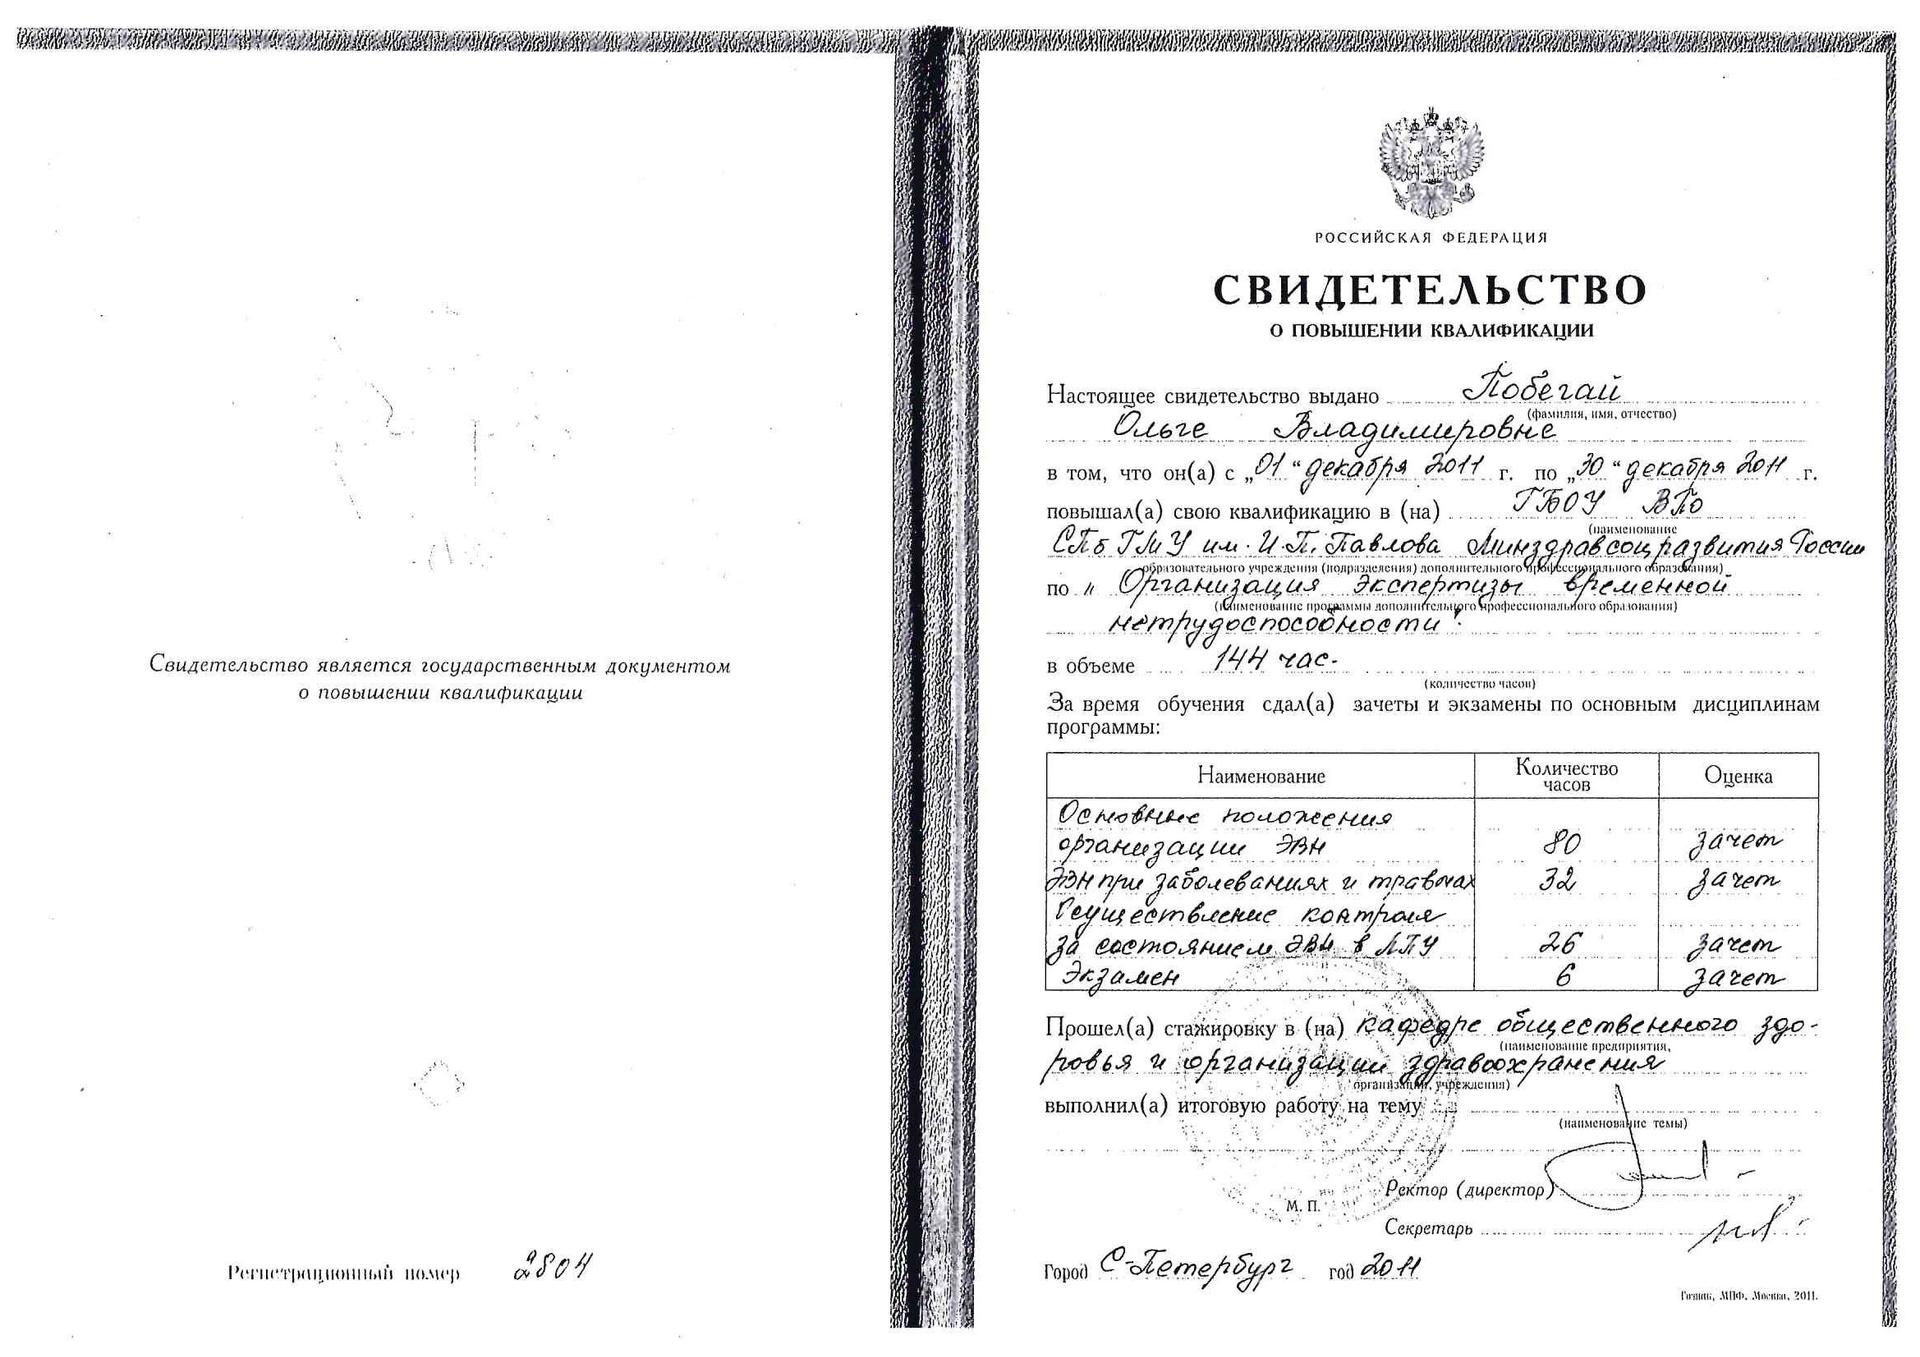 Свидетельство является государственным документом
о повышении квалификации
Регистрационный номер 2804
РОССИЙСКАЯ ФЕДЕРАЦИЯ
СВИДЕТЕЛЬСТВО
О ПОВЫШЕНИИ КВАЛИФИКАЦИИ
Настоящее свидетельство выдано Побегай
(фамилия, имя, отчество)
Ольге Владимировне
в том, что он(а) с „01“ декабря 2011 г. по „30“ декабря 2011 г.
повышал(а) свою квалификацию в (на) ГБОУ ВПО
(наименование
СПб ГМУ им. И.П. Павлова Минздравсоцразвития России
образовательного учреждения (подразделения) дополнительного профессионального образования)
по „ Организация экспертизы временной
(наименование программы дополнительного профессионального образования)
нетрудоспособности".
в объеме 144 час.
(количество часов)
За время обучения сдал(а) зачеты и экзамены по основным дисциплинам
программы:
Наименование Количество часов Оценка
Основные положения
организации ЭВН 80 зачет
ЭВН при заболеваниях и травмах 32 зачет
Осуществление контроля
за состоянием ЭВН в ЛПУ 26 зачет
Экзамен 6 зачет
Прошел(а) стажировку в (на) кафедре общественного здо-
(наименование предприятия,
ровья и организации здравоохранения
организации, учреждения)
выполнил(а) итоговую работу на тему
(наименование темы)
М. П.
Ректор (директор)
Секретарь
Город С-Петербург год 2011
Гознак, МПФ, Москва, 2011.